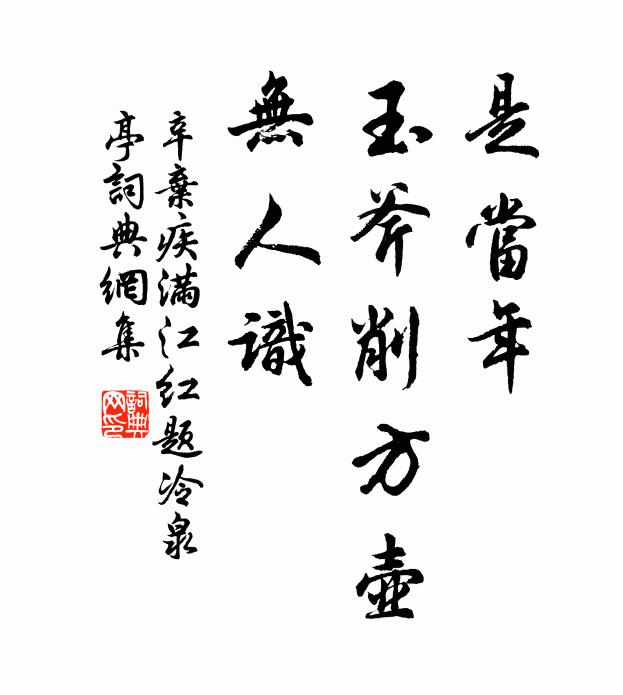 是當年
玉斧削方壺
無人識
辛棄疾滿江紅題冷泉
亭詞典網集
詞典
网印